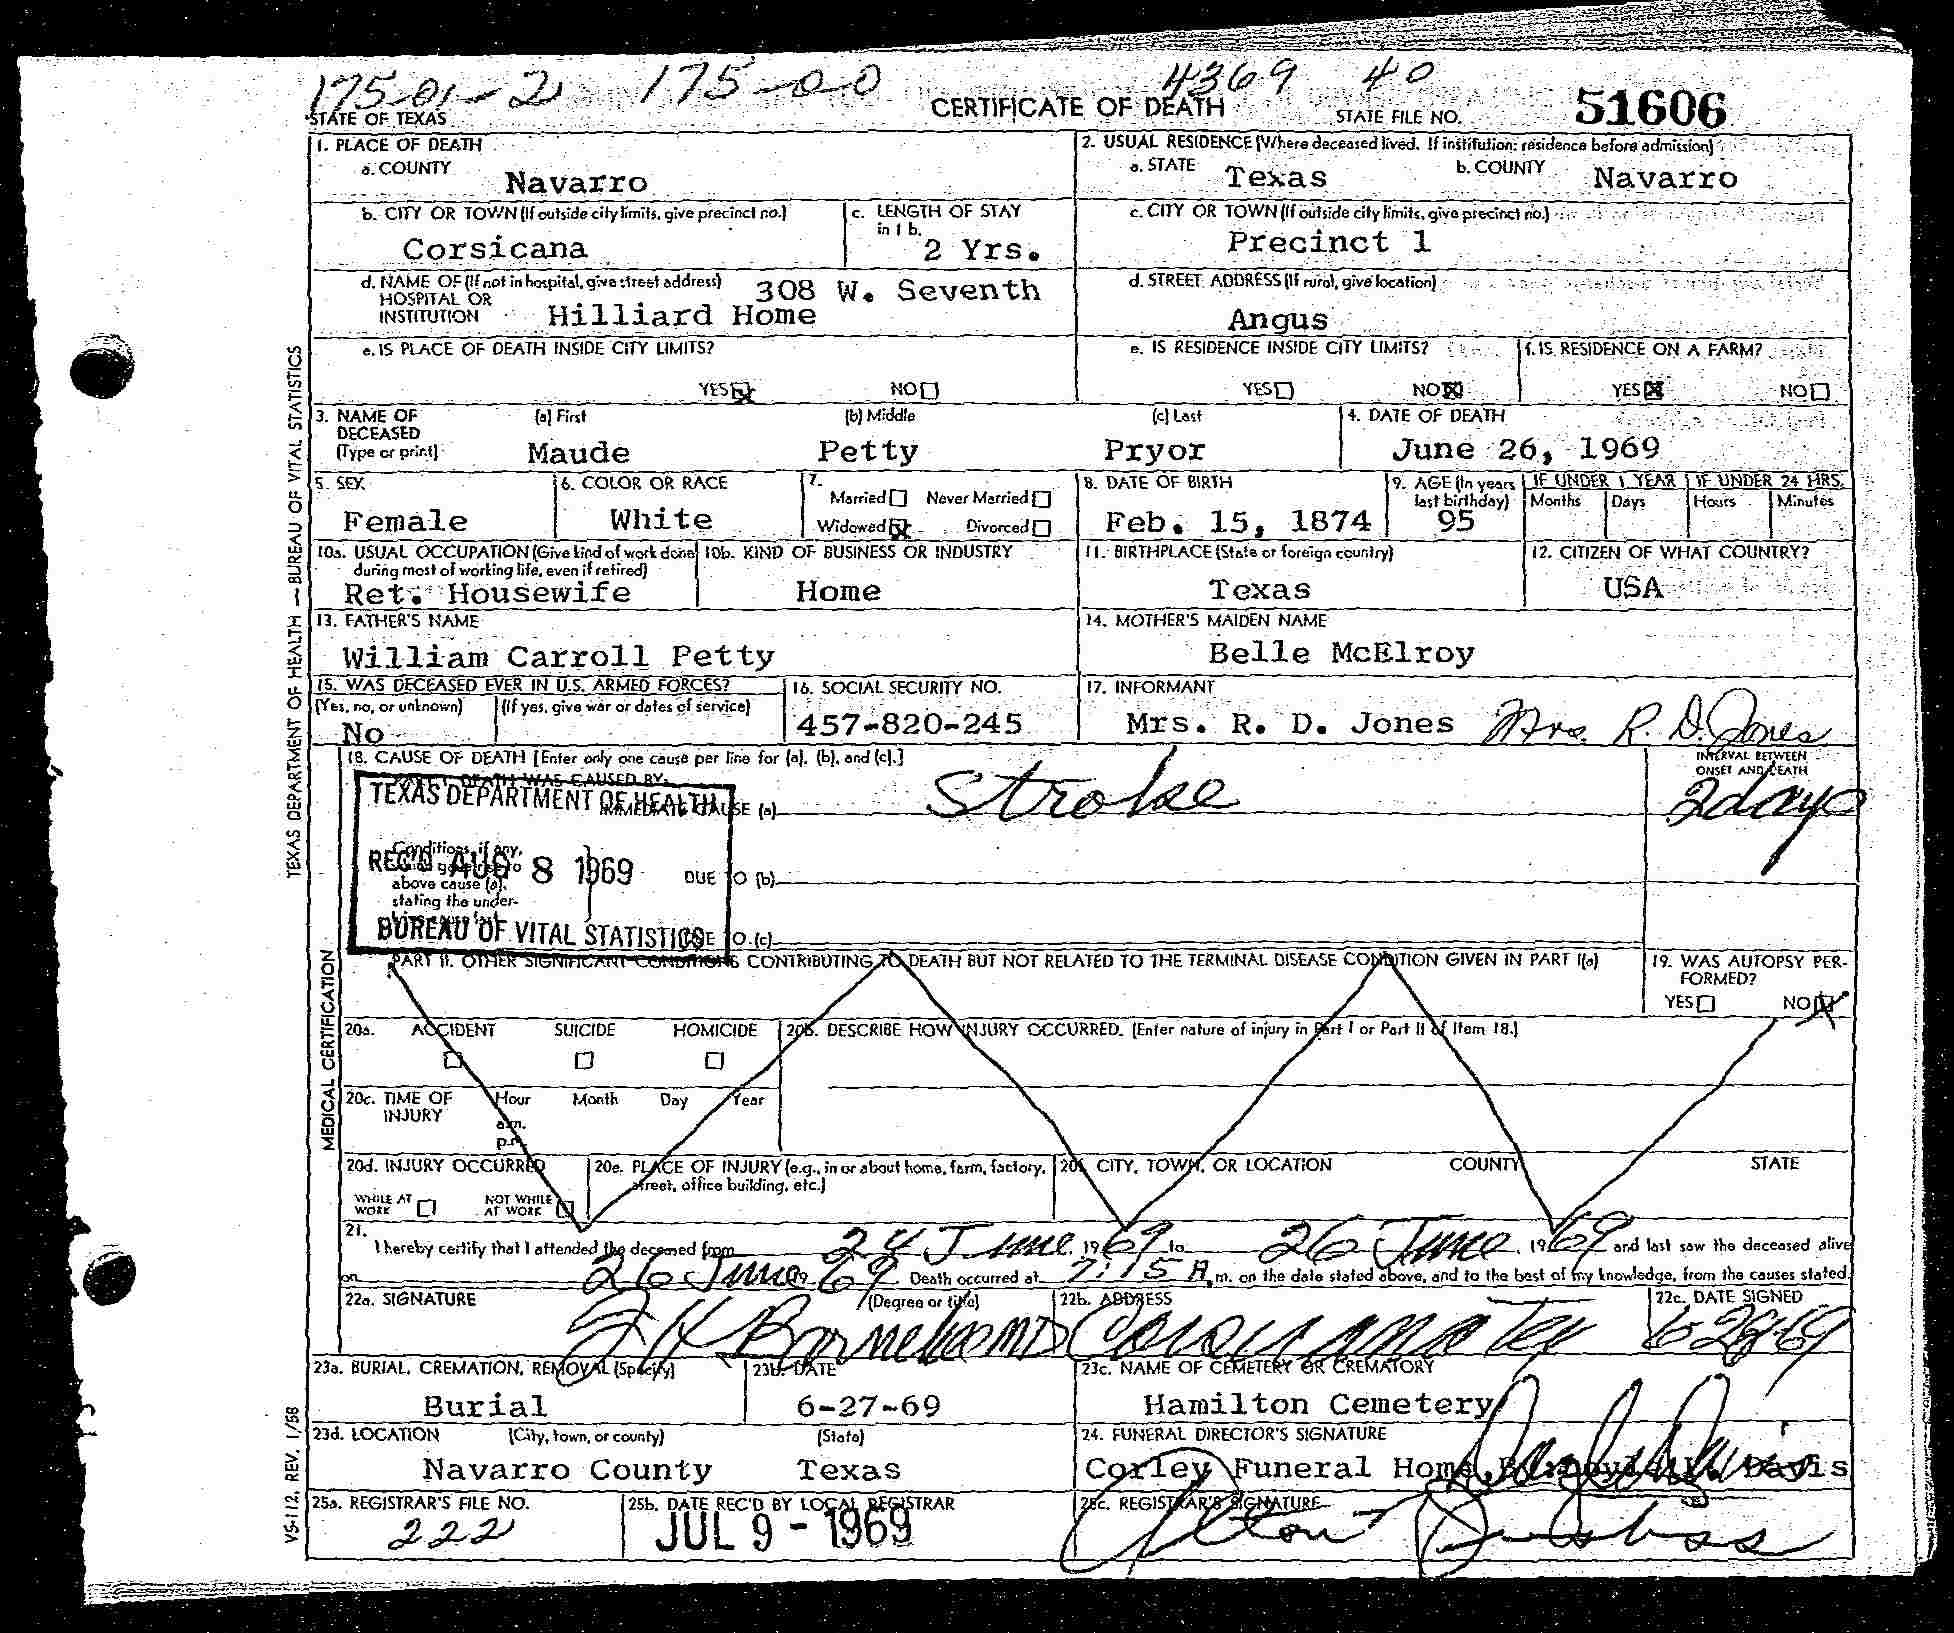 175-01-2 175-00 4369 40
STATE OF TEXAS CERTIFICATE OF DEATH STATE FILE NO. 51606
1. PLACE OF DEATH
a. COUNTY Navarro
2. USUAL RESIDENCE (Where deceased lived. If institution: residence before admission)
a. STATE Texas b. COUNTY Navarro
b. CITY OR TOWN (If outside city limits, give precinct no.) Corsicana
c. LENGTH OF STAY in 1 b. 2 Yrs.
c. CITY OR TOWN (If outside city limits, give precinct no.) Precinct 1
d. NAME OF (If not in hospital, give street address) HOSPITAL OR INSTITUTION 308 W. Seventh
Hilliard Home
d. STREET ADDRESS (If rural, give location)
Angus
e. IS PLACE OF DEATH INSIDE CITY LIMITS?
YES NO
e. IS RESIDENCE INSIDE CITY LIMITS?
YES NO
f. IS RESIDENCE ON A FARM?
YES NO
3. NAME OF DECEASED (Type or print)
(a) First (b) Middle (c) Last
Maude Petty Pryor
4. DATE OF DEATH
June 26, 1969
5. SEX
Female
6. COLOR OR RACE
White
7. Married Never Married
Widowed Divorced
8. DATE OF BIRTH
Feb. 15, 1874
9. AGE (In years last birthday)
95
IF UNDER 1 YEAR
Months Days
IF UNDER 24 HRS.
Hours Minutes
10a. USUAL OCCUPATION (Give kind of work done during most of working life, even if retired)
Ret. Housewife
10b. KIND OF BUSINESS OR INDUSTRY
Home
11. BIRTHPLACE (State or foreign country)
Texas
12. CITIZEN OF WHAT COUNTRY?
USA
13. FATHER'S NAME
William Carroll Petty
14. MOTHER'S MAIDEN NAME
Belle McElroy
15. WAS DECEASED EVER IN U.S. ARMED FORCES?
(Yes, no, or unknown) (If yes, give war or dates of service)
No
16. SOCIAL SECURITY NO.
457-820-245
17. INFORMANT
Mrs. R. D. Jones Mrs. R. D. Jones
18. CAUSE OF DEATH [Enter only one cause per line for (a), (b), and (c).]
INTERVAL BETWEEN ONSET AND DEATH
DEATH WAS CAUSED BY:
IMMEDIATE CAUSE (a) Stroke 2 days
TEXAS DEPARTMENT OF HEALTH
REC'D AUG 8 1969
BUREAU OF VITAL STATISTICS
Conditions, if any,
above cause (a),
stating the under-
DUE TO (b)
DUE TO (c)
PART II. OTHER SIGNIFICANT CONDITIONS CONTRIBUTING TO DEATH BUT NOT RELATED TO THE TERMINAL DISEASE CONDITION GIVEN IN PART I(a)
19. WAS AUTOPSY PER-
FORMED?
YES NO
20a. ACCIDENT SUICIDE HOMICIDE
20b. DESCRIBE HOW INJURY OCCURRED. (Enter nature of injury in Part I or Part II of Item 18.)
20c. TIME OF INJURY
Hour Month Day Year
a.m.
p.m.
20d. INJURY OCCURRED
WHILE AT WORK NOT WHILE AT WORK
20e. PLACE OF INJURY (e.g., in or about home, farm, factory, street, office building, etc.)
20f. CITY, TOWN, OR LOCATION COUNTY STATE
21. I hereby certify that I attended the deceased from 24 June, 1969 to 26 June, 1969 and last saw the deceased alive
on 26 June 69. Death occurred at 7:15 A.m. on the date stated above, and to the best of my knowledge, from the causes stated.
22a. SIGNATURE (Degree or title)
22b. ADDRESS
Corsicana Tex
22c. DATE SIGNED
6-28-69
23a. BURIAL, CREMATION, REMOVAL (Specify)
Burial
23b. DATE
6-27-69
23c. NAME OF CEMETERY OR CREMATORY
Hamilton Cemetery
23d. LOCATION (City, town, or county) (State)
Navarro County Texas
24. FUNERAL DIRECTOR'S SIGNATURE
Corley Funeral Home Davis
25a. REGISTRAR'S FILE NO.
222
25b. DATE REC'D BY LOCAL REGISTRAR
JUL 9 - 1969
25c. REGISTRAR'S SIGNATURE
TEXAS DEPARTMENT OF HEALTH — BUREAU OF VITAL STATISTICS
MEDICAL CERTIFICATION
VS-112, REV. 1/58